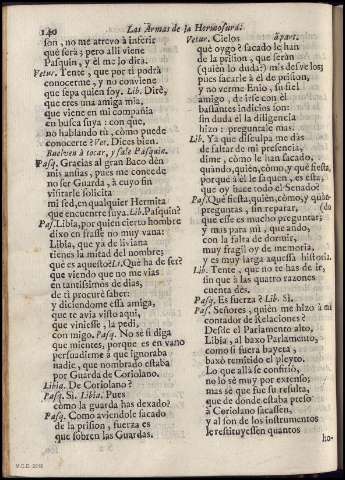 140
Las Armas de la Hermosura.
son, no me atrevo à inferir
què serà; pero alli viene
Pasquin, y èl me lo dirà.
Vetur. Tente, que por ti podrà
conocerme, y no conviene
que sepa quien soy. Lib. Dirè,
que eres una amiga mia,
que viene en mi compañia
en busca suya: con que,
no hablando tù, còmo puede
conocerte? Vet. Dices bien.
Buelven à tocar, y sale Pasquin.
Pasq. Gracias al gran Baco dèn
mis ansias, pues me concede
no ser Guarda, à cuyo fin
visitarle solicita
mi sed, en qualquier Hermita
que encuentre suya. Lib. Pasquin?
Pas. Libia, por quien cierto hombre
dixo en frasse no muy vana:
Libia, que yà de liviana
tienes la mitad del nombre;
què es aquesto? Li. Què ha de ser?
que viendo que no me vias
en tantissimos de dias,
de ti procurè saber,
y diciendome essa amiga,
que te avia visto aqui,
que viniesse, la pedi,
con migo. Pasq. No sè si diga
que mientes, porque es en vano
persuadirme à que ignoraba
nadie, que nombrado estaba
por Guarda de Coriolano.
Libia. De Coriolano?
Pasq. Si. Libia. Pues
còmo la guarda has dexado?
Pasq. Como aviendole sacado
de la prision, fuerza es
que sobren las Guardas.
Vetur. Cielos aparte.
què oygo? sacado le han
de la prision, què seràn
(quièn lo duda?) mis desvelos;
pues sacarle à èl de prision,
y no verme Enio, su fiel
amigo, de irse con èl
bastantes indicios son:
sin duda el la diligencia
hizo: preguntale mas.
Lib. Yà que disculpa me dàs
de faltar de mi presencia,
dime, còmo le han sacado,
quando, quièn, còmo, y què fiesta,
porque à èl le saquen, es esta,
que oy hace todo el Senado?
Pas. Què fiesta, quièn, còmo, y quàn-
preguntas, sin reparar, (do
que esse es mucho preguntar;
y mas para mi, que ando,
con la falta de dormir,
muy fragil oy de memoria,
y es muy larga aquessa historia.
Lib. Tente, que no te has de ir,
sin que à las quatro razones
cuenta dès.
Pasq. Es fuerza? Lib. Sì.
Pas. Señores, quièn me hizo à mi
contador de Relaciones?
Desde el Parlamento alto,
Libia, al baxo Parlamento,
como si fuera bayeta,
baxò remitido el pleyto.
Lo que allà se confiriò,
no lo sè muy por extenso;
mas sè que fue su resulta,
que de donde estaba preso
à Coriolano sacassen,
y al son de los instrumentos
le restituyessen quantos
ho-